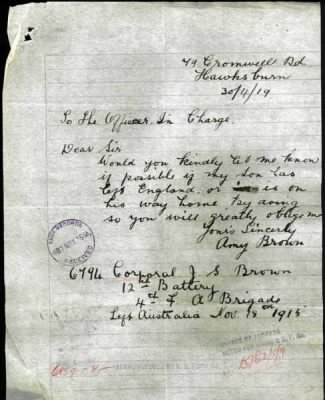 79 Cromwell Rd
Hawksburn
30/4/19
To The Officer In Charge
Dear Sir
Would you kindly let me know
if possible if my Son has
left England. or is on
his way home by doing
so you will greatly oblige me
Yours Sincerely
Amy Brown
BASE RECORDS
RECEIVED
6794 Corporal J S Brown
12th Battery
4th F. A. Brigade
Left Australia Nov 18th 1915